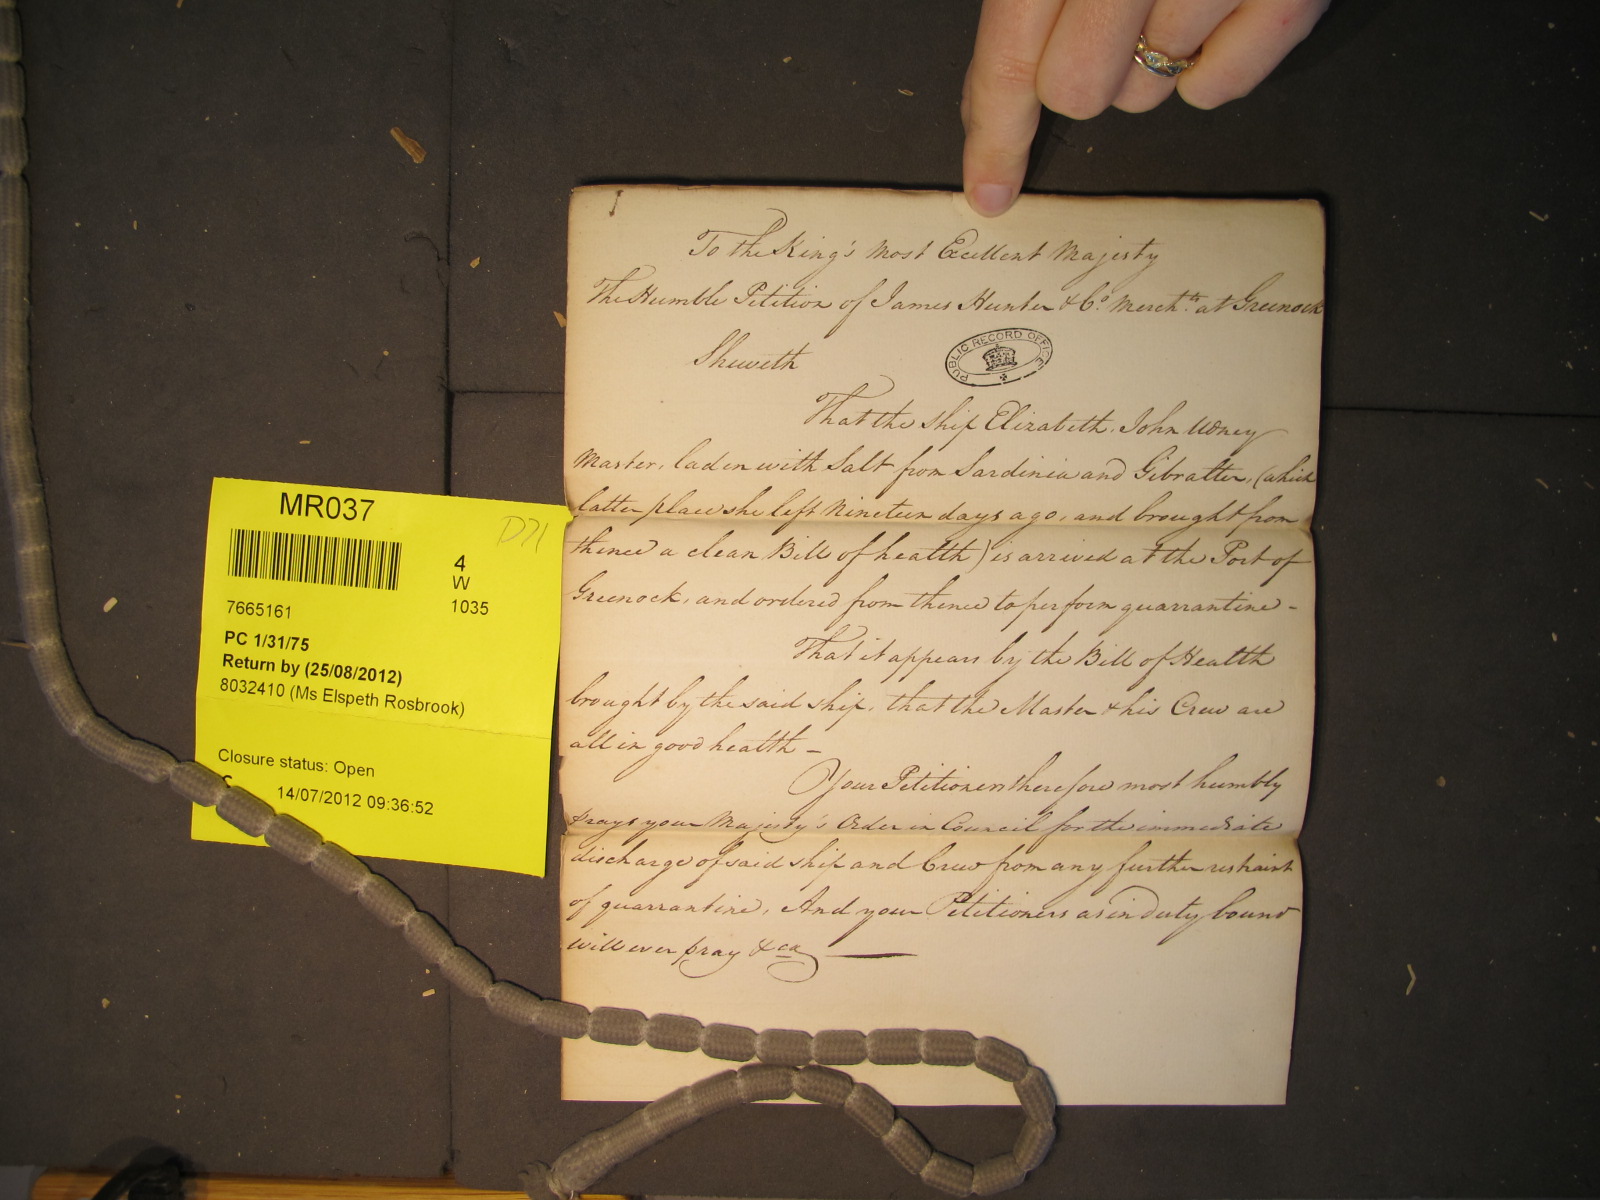 To the King's most Excellent Majesty
The Humble Petition of James Hunter & Co. Merchts. at Greenock
Sheweth
PUBLIC RECORD OFFICE
That the ship Elizabeth, John Udney
Master, laden with Salt from Sardinia and Gibralter, (which
latter place she left Nineteen days ago, and brought from
thence a clean Bill of health) is arrived at the Port of
Greenock, and ordered from thence to perform quarrantine -
That it appears by the Bill of Health
brought by the said ship, that the Master & his Crew are
all in good health -
Your Petitioners therefore most humbly
prays your Majesty's Order in Council for the immediate
discharge of said ship and Crew from any further restraint
of quarrantine, And your Petitioners as in duty bound
will ever pray &ca
MR037
D71
4
W
1035
7665161
PC 1/31/75
Return by (25/08/2012)
8032410 (Ms Elspeth Rosbrook)
Closure status: Open
14/07/2012 09:36:52